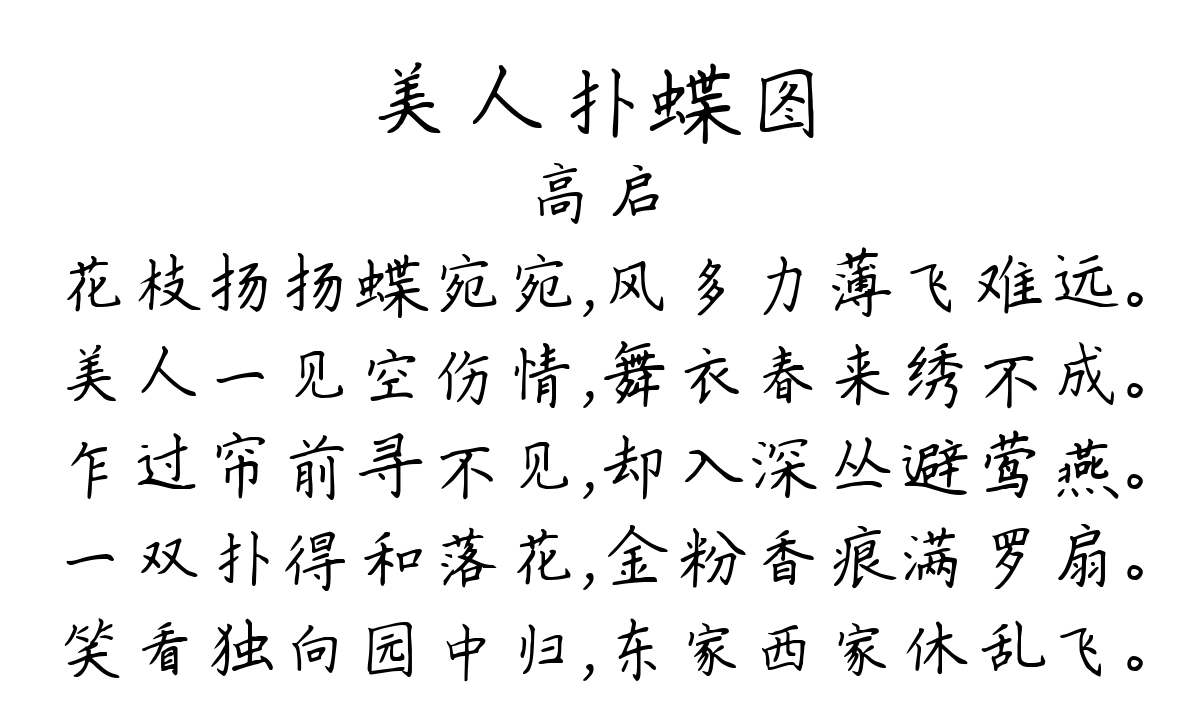 美人扑蝶图
高启
花枝扬扬蝶宛宛,风多力薄飞难远。
美人一见空伤情,舞衣春来绣不成。
乍过帘前寻不见,却入深丛避莺燕。
一双扑得和落花,金粉香痕满罗扇。
笑看独向园中归,东家西家休乱飞。